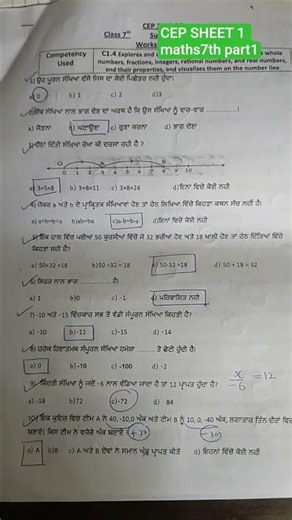 CEP SHEET 1
maths7th part1
CEP
Class 7th Su
Works
Competency Used
C1.4 Explores and whole
numbers, fractions, integers, rational numbers, and real numbers,
and their properties, and visualises them on the number line
1) ਉਹ ਪੂਰਨ ਸੰਖਿਆ ਦੱਸੋ ਜਿਸ ਦਾ ਕੋਈ ਪਿਛੇਤਰ ਨਹੀਂ ਹੁੰਦਾ:
a) 0 b) 1 c) 2 d)3
2)ਇੱਕ ਸੰਖਿਆ ਨਾਲ ਭਾਗ ਦੇਣ ਦਾ ਅਰਥ ਹੈ ਕਿ ਉਸ ਸੰਖਿਆ ਨੂੰ ਵਾਰ-ਵਾਰ ..............!
a) ਜੋੜਨਾ b) ਘਟਾਉਣਾ c) ਗੁਣਾ ਕਰਨਾ d) ਭਾਗ ਦੇਣਾ
3) ਹੇਠਾਂ ਦਿੱਤੀ ਸੰਖਿਆ ਰੇਖਾ ਕੀ ਦਰਸਾ ਰਹੀ ਹੈ ?
0 1 2 3 4 5 6 7 8 9 10
a) 3+5=8 b) 3+8=11 c) 3×8=24 d)ਇਨਾਂ ਵਿਚੋ ਕੋਈ ਨਹੀਂ
4) ਜੇਕਰ a ਅਤੇ b ਦੋ ਪ੍ਰਾਕ੍ਰਿਤਕ ਸੰਖਿਆਵਾਂ ਹੋਣ ਤਾਂ ਹੇਠ ਲਿਖਿਆਂ ਵਿੱਚੋਂ ਕਿਹੜਾ ਕਥਨ ਸੱਚ ਨਹੀਂ ਹੈ।
a) a+b=b+a b)ab=ba c)a-b=b-a d)ਇਨਾਂ ਵਿਚੋ ਕੋਈ ਨਹੀਂ
5) ਇੱਕ ਹਾਲ ਵਿੱਚ ਪਈਆਂ 50 ਕੁਰਸੀਆਂ ਵਿੱਚੋਂ ਜੇ 32 ਭਰੀਆਂ ਹੋਣ ਅਤੇ 18 ਖਾਲੀ ਹੋਣ ਤਾਂ ਹੇਠ ਦਿੱਤਿਆਂ ਵਿੱਚੋਂ
ਕਿਹੜਾ ਸਹੀ ਹੈ?
a) 50+32 =18 b)50÷32 = 18 c) 50-32 =18 d) 50 + 18 = 32
6) ਸਿਫਰ ਨਾਲ ਭਾਗ .......... ਹੈ।
a) 1 b)0 c) -1 d) ਪਰਿਭਾਸ਼ਿਤ ਨਹੀਂ
7)-10 ਅਤੇ -15 ਵਿੱਚਕਾਰ ਸਭ ਤੋਂ ਵੱਡੀ ਸੰਪੂਰਨ ਸੰਖਿਆ ਕਿਹੜੀ ਹੈ?
a) -10 b)-11 c)-15 d) -14
8) ਹਰੇਕ ਰਿਣਾਤਮਕ ਸੰਪੂਰਨ ਸੰਖਿਆ ਹਮੇਸ਼ਾ .............. ਤੋਂ ਛੋਟੀ ਹੁੰਦੀ ਹੈ।
a) 0 b)-10 c) -100 d) -2
x/-6 = 12
9) ਕਿਹੜੀ ਸੰਖਿਆ ਨੂੰ ਜਦੋਂ -6 ਨਾਲ ਵੰਡਿਆ ਜਾਂਦਾ ਹੈ ਤਾਂ 12 ਪ੍ਰਾਪਤ ਹੁੰਦਾ ਹੈ?
a) -18 b)72 c)-72 d) 84
10) ਇੱਕ ਕੁਇਜ਼ ਵਿੱਚ ਟੀਮ A ਨੇ 40, -10,0 ਅੰਕ ਅਤੇ ਟੀਮ B ਨੂੰ 10, 0, -40 ਅੰਕ, ਲਗਾਤਾਰ ਤਿੰਨ ਦੌਰਾਂ ਵਿਚ
ਬਣਾਏ। ਕਿਸ ਟੀਮ ਨੇ ਵਧੇਰੇ ਅੰਕ ਬਣਾਏ ? +30 -30
a) A b)B c) A ਅਤੇ B ਦੋਵਾਂ ਨੇ ਸਮਾਨ ਅੰਕ ਪ੍ਰਾਪਤ ਕੀਤੇ d) ਇਹਨਾਂ ਵਿੱਚੋਂ ਕੋਈ ਨਹੀਂ